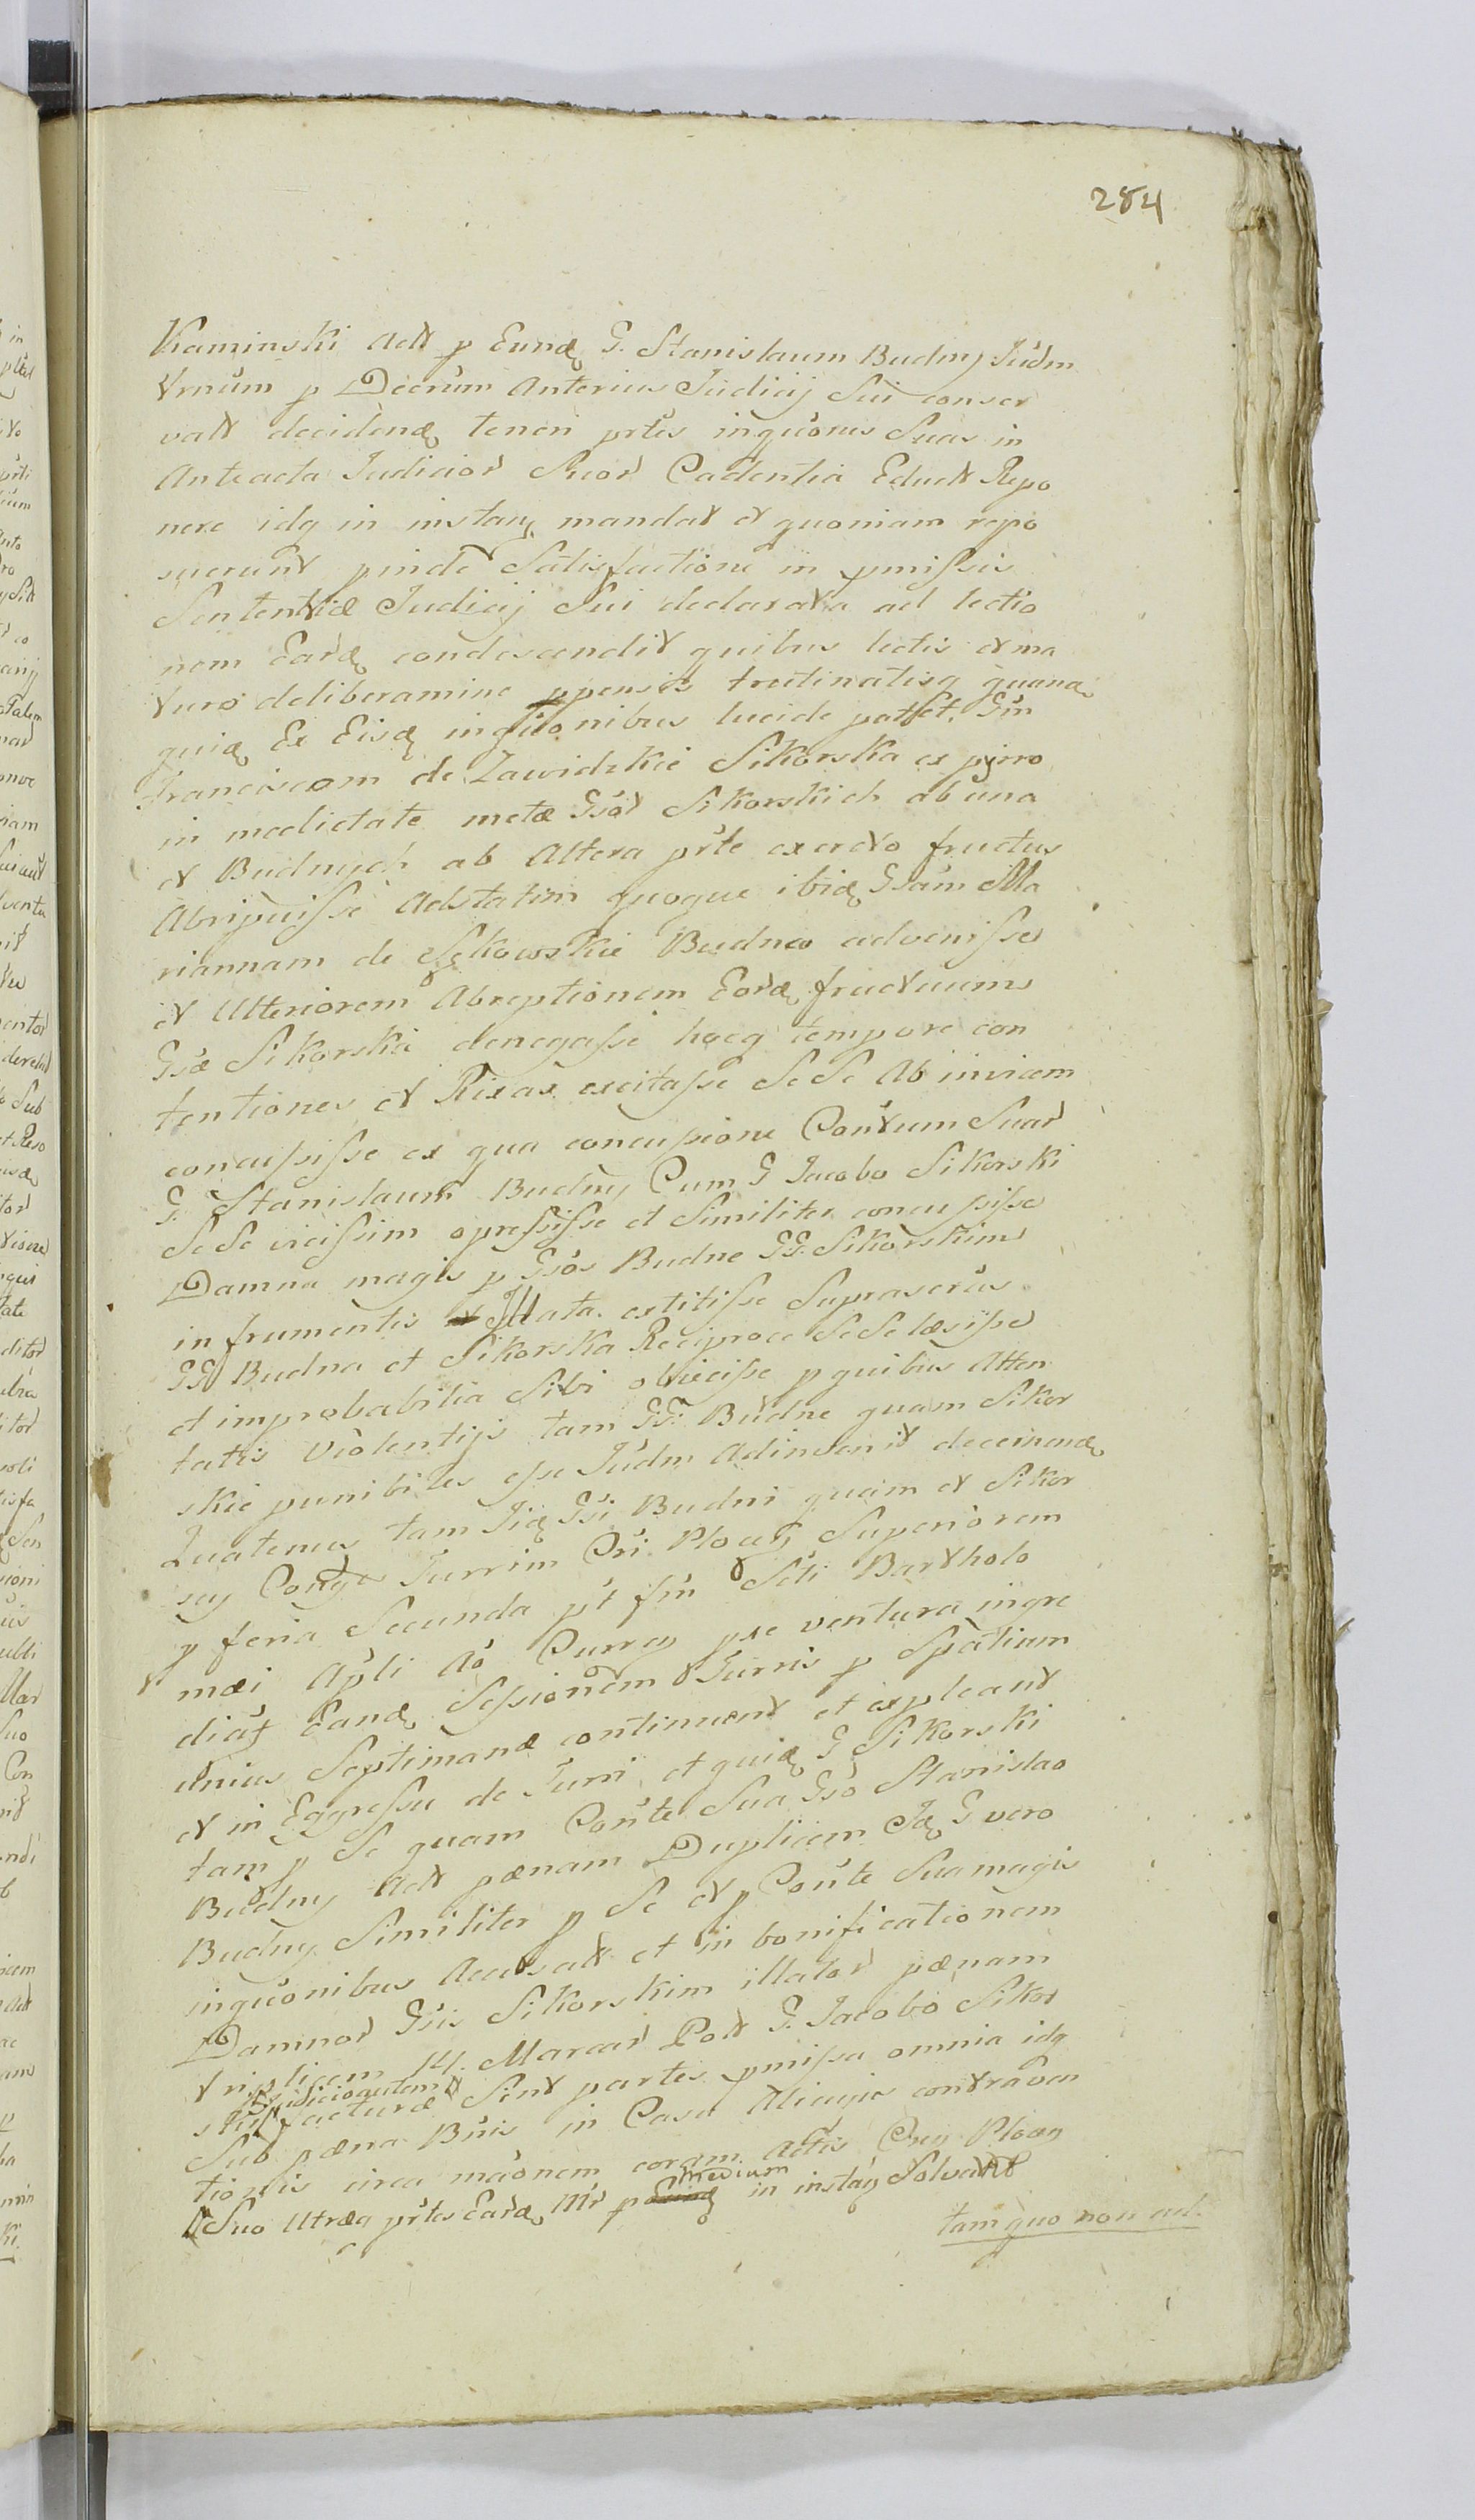 284
Kaminski Actt p Eundę G. Stanislaum Budny Iudm
Trnum p Decrum Anterius Iudicij Sui conser
vatt decidendę teneri prtes inqüones Suas in
Anteacta Iudicior Suor Cadentia Eductt Repo
nere idq in instan mandat et quoniam repo
suerunt pinde Satisfactione in pmissis
Sententiæ Iudicij Sui declarata ad lectio
nem Eardę condescendit quibus lectis et ma
turo deliberamine ppensis trutinatisq quandę
quidę Ex Eisdę inqüionibus lucide patset, Gsm
Franciscam de Zawidzkie Sikorska ex pyrro
in medietate metæ Gsor Sikorskich ab una
et Budnych ab Altera prte exercto fructus
Abripuisse Adstatim quoque ibidę Gsam Ma
riannam de Sękowskie Budna advenisse
et Ulteriorem Abreptionem Eordę fructuum
Gsæ Sikorska denegasse hocq tempore con
tentiones et Rixas excitasse Se Se Ab invicem
concussisse ex qua concussione Contum Suar
G. Stanislaum Budny Cum G Iacobo Sikorski
Se Se vicissim opressisse et Similiter concussisse
Damna magis p Gsos Budne GG. Sikorskim
in frumentis Illata extitisse Suprascrus
GG Budna et Sikorska Reciproce Se Se læsisse
et improbabilia Sibi obiecisse p quibus Atten
tatis Violentijs tam Gsi Budne quam Sikor
skie punibiles esse Iudm Adinvenit decernendę
Quatenus tam Iidę Gsi Budni quam et Sikor
scy Conge Turrim Cri Plocen Superiorem
p feria Secunda pt fm Scti Bartholo
mæi Apli Ao Curren pxe ventura ingre
diat Eandę Sessionem Turris p Spatium
unius Septimanæ continuent et expleant
et in Eggressu de Turri et quidę G Sikorski
tam p Se quam Conte Sua Gso Stanislao
Budny Actt pænam Duplicem Idę G vero
Budny Similiter p Se et p Conte Sua magis
inqüonibus Accusatt et in bonificationem
Damnor Gsis Sikorskim illator pænam
triplicem 14. Marcar Pott G. Iacobo Sikor
ski facturæ Sint partes pmissa omnia idq
Sub pæna Bnis in Casu Alicujus contraven
tionis circa maonem coram Actis Cren Plocen
Suo Utræq prtes Eardę Mr p medium in instan Solvant
tam quo non ad.